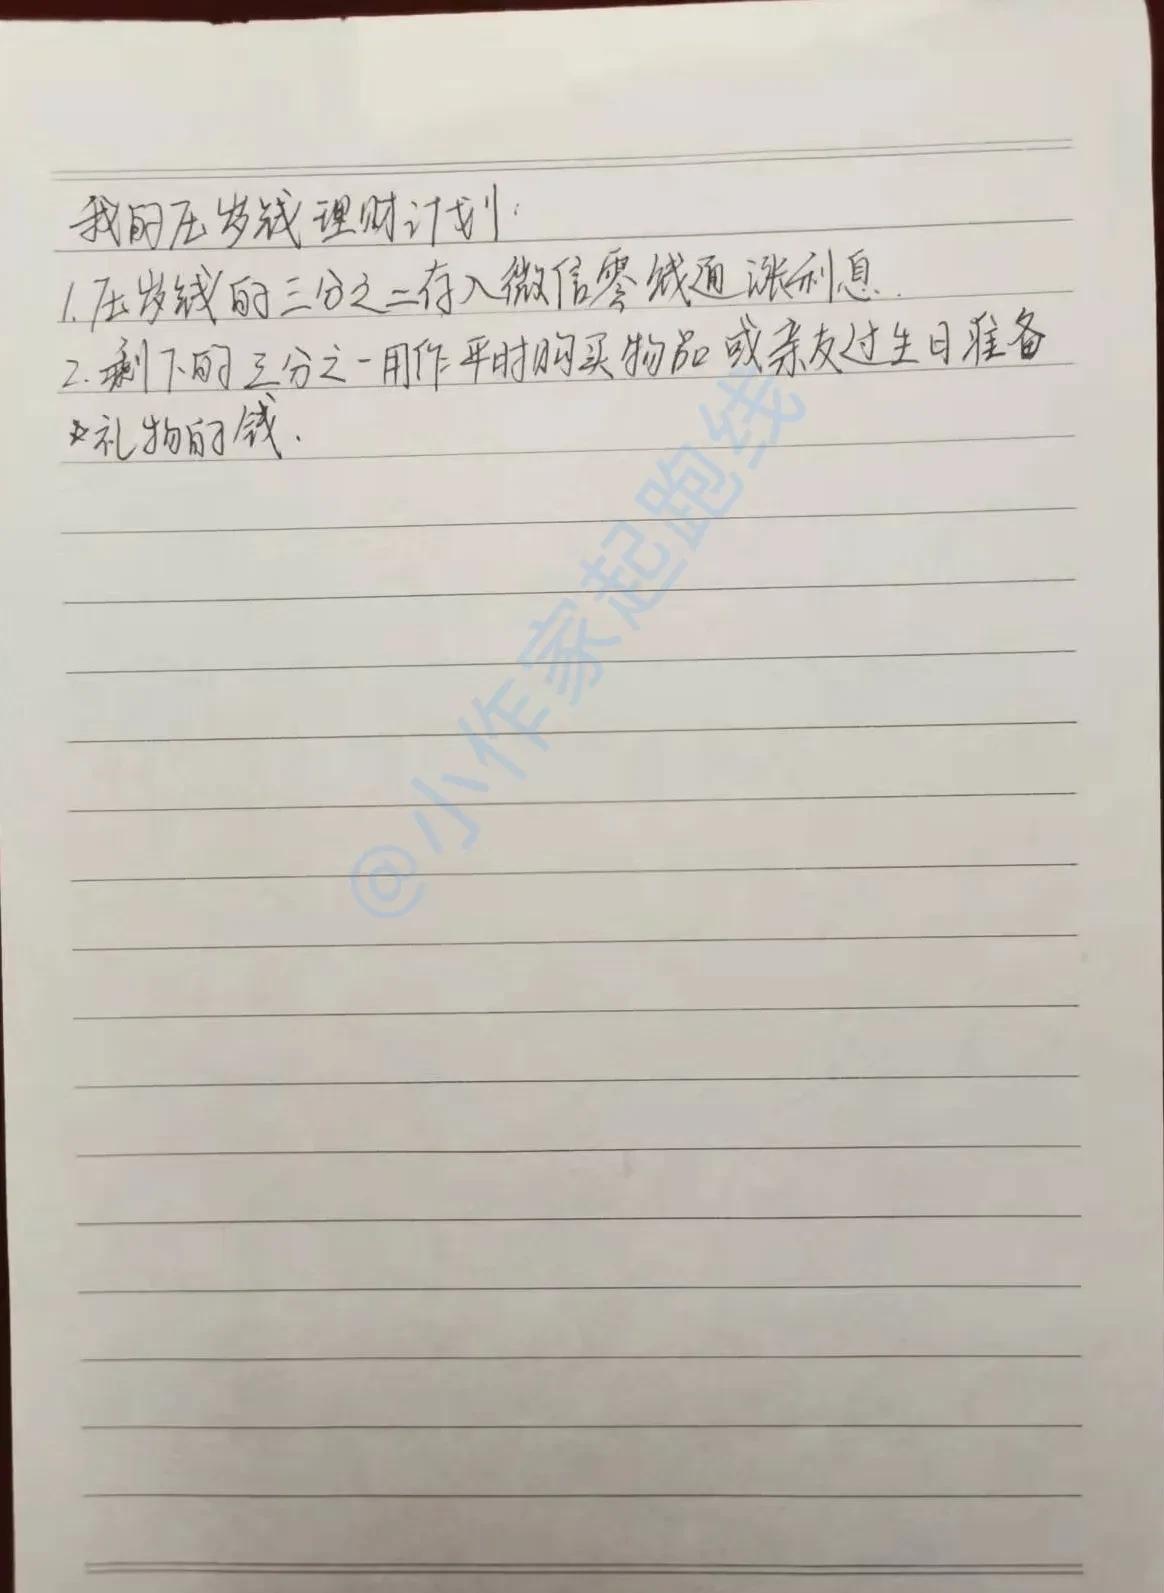 我的压岁钱理财计划:
1.压岁钱的三分之二存入微信零钱通涨利息.
2.剩下的三分之一用作平时购买物品或亲友过生日准备
礼物的钱.
@小作家起跑线